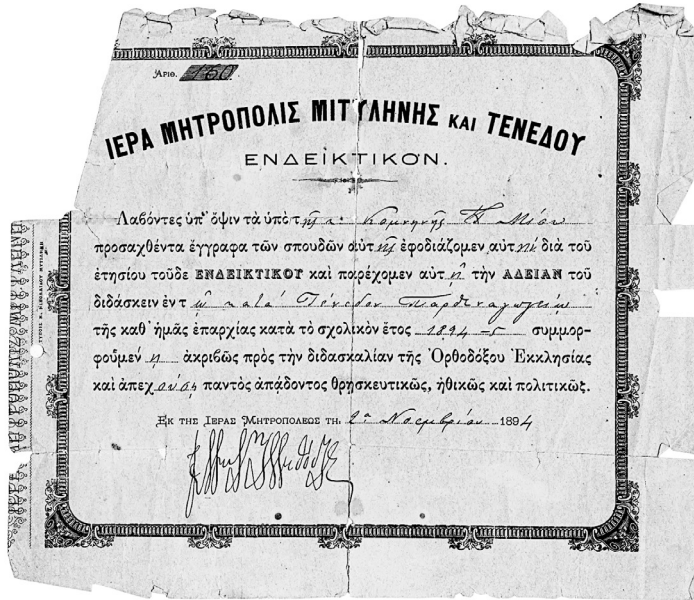 Ἀριθ. 150
ΙΕΡΑ ΜΗΤΡΟΠΟΛΙΣ ΜΙΤΥΛΗΝΗΣ ΚΑΙ ΤΕΝΕΔΟΥ
ΕΝΔΕΙΚΤΙΚΟΝ.
Λαβόντες ὑπ' ὄψιν τὰ ὑπὸ τῆς κ. Κομνηνῆς
προσαχθέντα ἔγγραφα τῶν σπουδῶν αὐτῆς ἐφοδιάζομεν αὐτὴν διὰ τοῦ
ἐτησίου τοῦδε ΕΝΔΕΙΚΤΙΚΟΥ καὶ παρέχομεν αὐτῇ τὴν ΑΔΕΙΑΝ τοῦ
διδάσκειν ἐν τῷ κατὰ Τένεδον Παρθεναγωγείῳ
τῆς καθ' ἡμᾶς ἐπαρχίας κατὰ τὸ σχολικὸν ἔτος 1894-5 συμμορ-
φουμένῃ ἀκριβῶς πρὸς τὴν διδασκαλίαν τῆς Ὀρθοδόξου Ἐκκλησίας
καὶ ἀπεχούσῃ παντὸς ἀπᾴδοντος θρησκευτικῶς, ἠθικῶς καὶ πολιτικῶς.
Ἐκ τῆς Ἱερᾶς Μητροπόλεως τῇ 2ᾳ Νοεμβρίου 1894